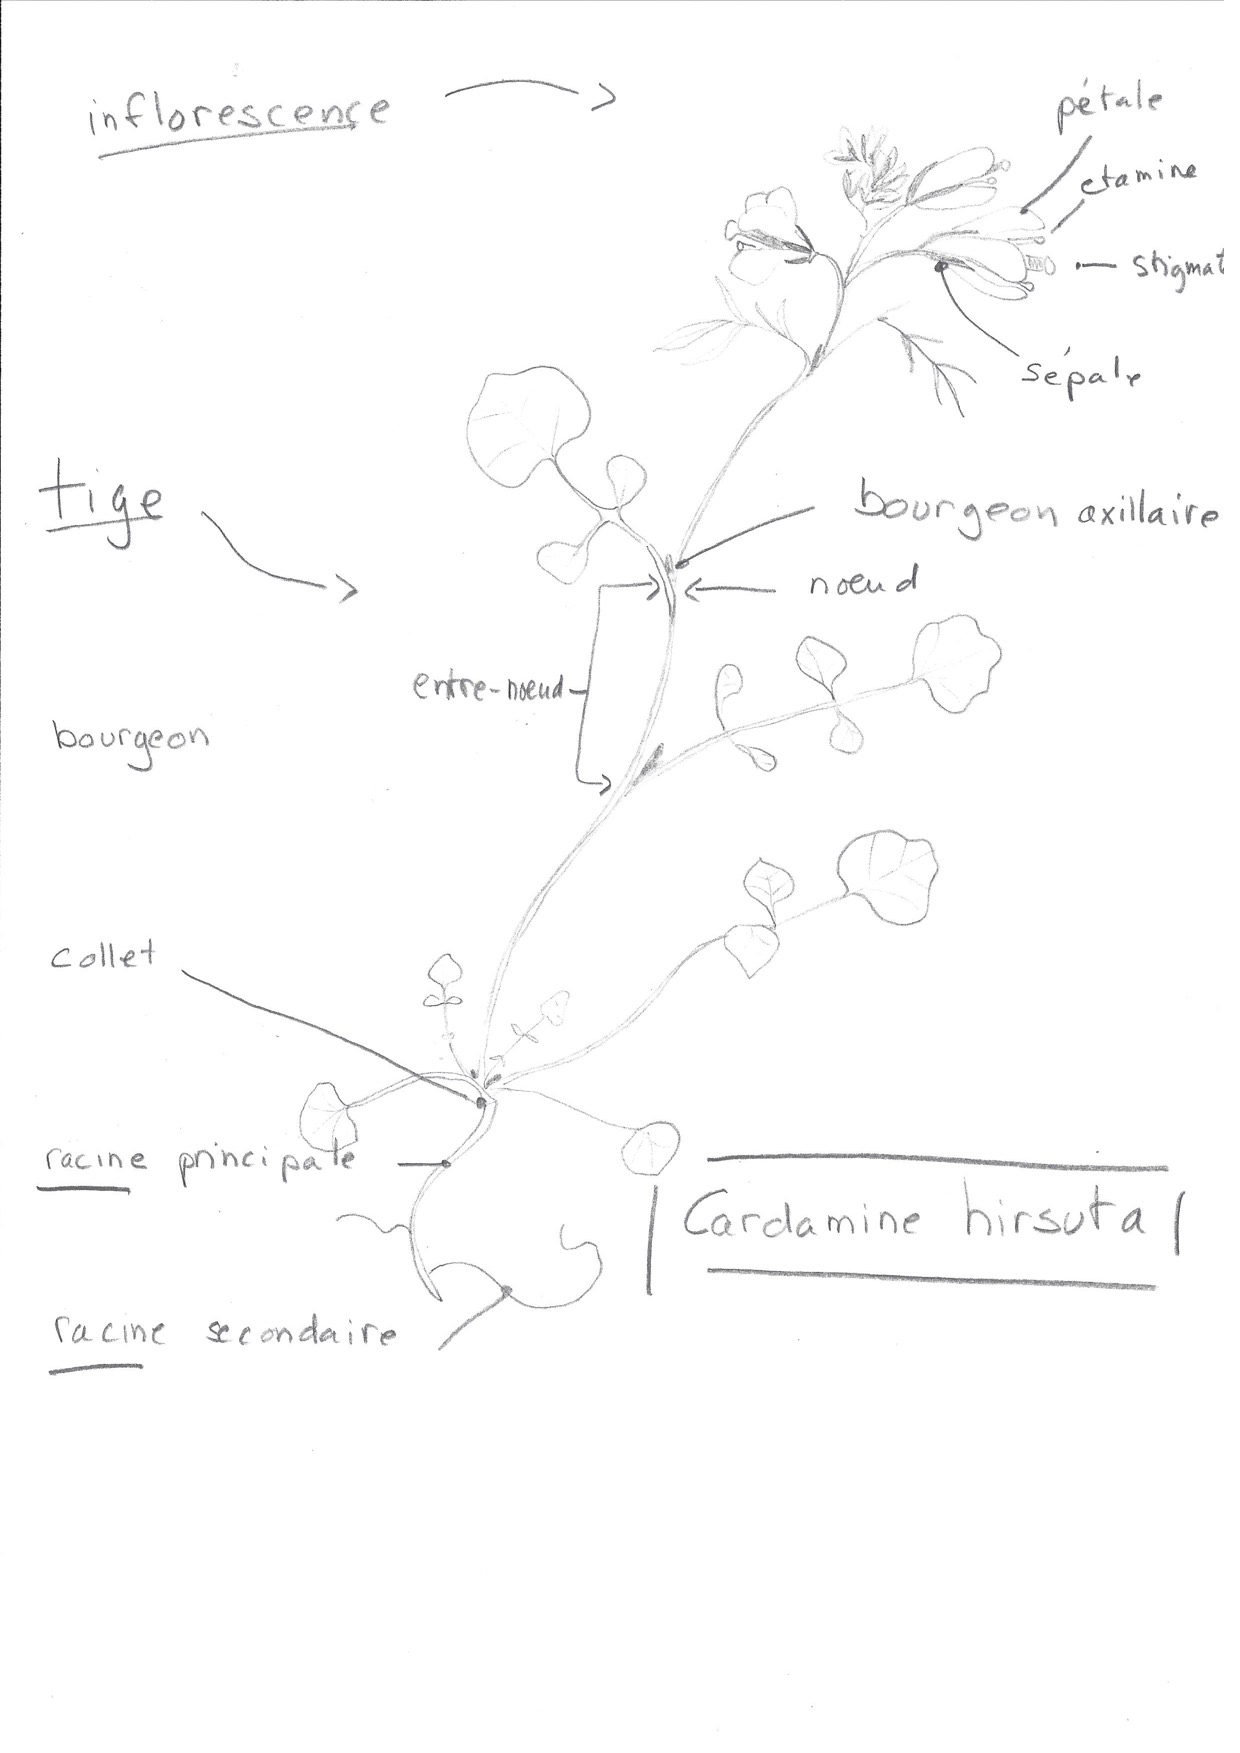 inflorescence
pétale
etamine
stigmat
sépale
tige
bourgeon axillaire
noeud
entre-noeud
bourgeon
collet
racine principale
Cardamine hirsuta
racine secondaire